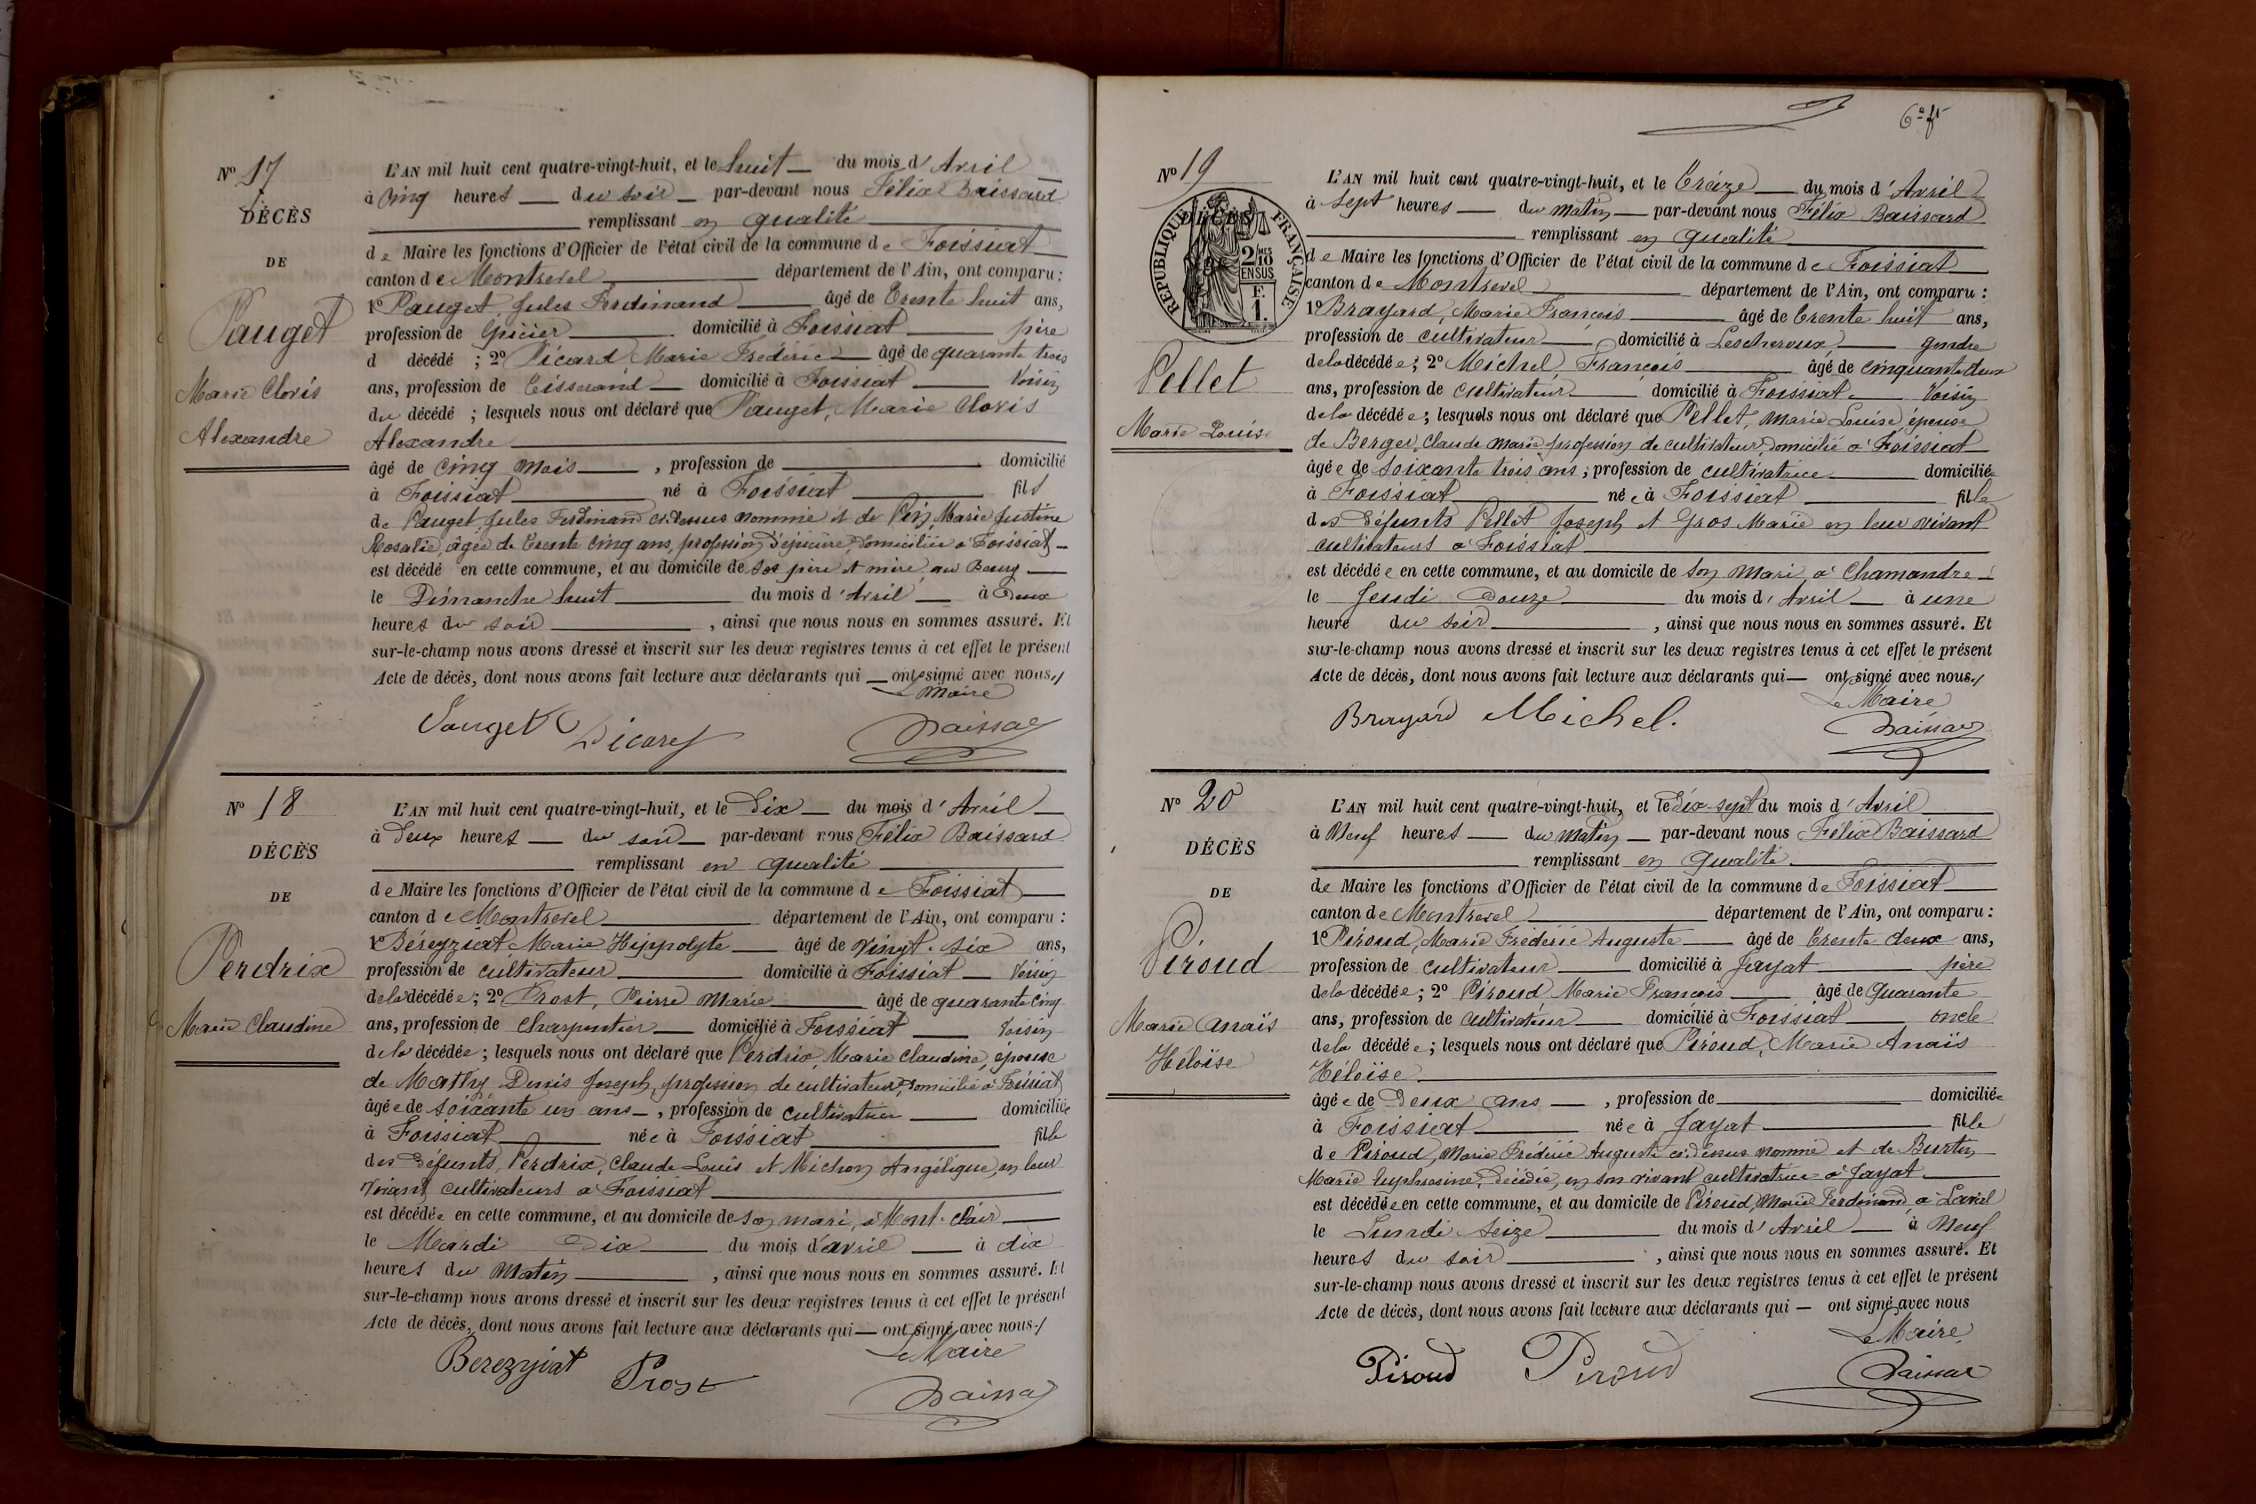 Nº 17
DÉCÈS
DE
Pauget
Marie Clovis
Alexandre
L'AN mil huit cent quatre-vingt-huit, et le huit du mois d'Avril
à Cinq heures du soir par-devant nous Félix Baissard
remplissant en qualité
de Maire les fonctions d'Officier de l'état civil de la commune de Foissiat
canton de Montrevel département de l'Ain, ont comparu :
1º Pauget, Jules Ferdinand âgé de Trente huit ans,
profession de Epicier domicilié à Foissiat père
d décédé ; 2º Picard Marie Frédéric âgé de quarante trois
ans, profession de Tisserand domicilié à Foissiat Voisin
du décédé ; lesquels nous ont déclaré que Pauget, Marie Clovis
Alexandre
âgé de Cinq Mois , profession de domicilié
à Foissiat né à Foissiat fils
de Pauget Jules Ferdinand ci-dessus nommé et de Pin, Marie Justine
Rosalie, âgée de Trente cinq ans, profession d'épicière, domiciliée à Foissiat
est décédé en cette commune, et au domicile de ses père et mère, au Bourg
le Dimanche huit du mois d'Avril à Deux
heures du soir , ainsi que nous nous en sommes assuré. Et
sur-le-champ nous avons dressé et inscrit sur les deux registres tenus à cet effet le présent
Acte de décès, dont nous avons fait lecture aux déclarants qui ont signé avec nous
Le Maire
Pauget Picard Baissard
Nº 18
DÉCÈS
DE
Perdrix
Marie Claudine
L'AN mil huit cent quatre-vingt-huit, et le Dix du mois d'Avril
à Deux heures du soir par-devant nous Félix Baissard
remplissant en qualité
de Maire les fonctions d'Officier de l'état civil de la commune de Foissiat
canton de Montrevel département de l'Ain, ont comparu :
1º Béreyziat, Marie Hippolyte âgé de vingt-six ans,
profession de cultivateur domicilié à Foissiat Voisin
de la décédée ; 2º Prost, Pierre Marie âgé de quarante cinq
ans, profession de Charpentier domicilié à Foissiat Voisin
de la décédée ; lesquels nous ont déclaré que Perdrix, Marie Claudine, épouse
de Mathy Denis Joseph, profession de cultivateur, domicilié à Foissiat
âgée de soixante un ans , profession de cultivateur domiciliée
à Foissiat née à Foissiat fille
des défunts Perdrix, Claude Louis et Michon Angélique, en leur
vivant cultivateurs à Foissiat
est décédée en cette commune, et au domicile de son mari, à Mont-Clair
le Mardi Dix du mois d'avril à dix
heures du Matin , ainsi que nous nous en sommes assuré. Et
sur-le-champ nous avons dressé et inscrit sur les deux registres tenus à cet effet le présent
Acte de décès, dont nous avons fait lecture aux déclarants qui ont signé avec nous
Le Maire
Bereyziat Prost Baissard
6e ft
Nº 19
RÉPUBLIQUE FRANÇAISE
2/10 MES
EN SUS
F.
1.
Pellet
Marie Louise
L'AN mil huit cent quatre-vingt-huit, et le Treize du mois d'Avril
à sept heures du Matin par-devant nous Félix Baissard
remplissant en qualité
de Maire les fonctions d'Officier de l'état civil de la commune de Foissiat
canton de Montrevel département de l'Ain, ont comparu :
1º Brayard, Marie François âgé de Trente huit ans,
profession de cultivateur domicilié à Lescheroux gendre
de la décédée ; 2º Michel, François âgé de cinquante deux
ans, profession de cultivateur domicilié à Foissiat Voisin
de la décédée ; lesquels nous ont déclaré que Pellet, Marie Louise épouse
de Berger, Claude Marie, profession de cultivateur, domicilié à Foissiat
âgée de soixante trois ans ; profession de cultivatrice domiciliée
à Foissiat née à Foissiat fille
des défunts Pellet Joseph et Gros Marie en leur vivant
cultivateurs à Foissiat
est décédée en cette commune, et au domicile de son Mari, à Chamandre
le Jeudi Douze du mois d'Avril à une
heure du soir , ainsi que nous nous en sommes assuré. Et
sur-le-champ nous avons dressé et inscrit sur les deux registres tenus à cet effet le présent
Acte de décès, dont nous avons fait lecture aux déclarants qui ont signé avec nous
Le Maire
Brayard Michel. Baissard
Nº 20
DÉCÈS
DE
Piroud
Marie Anaïs
Héloïse
L'AN mil huit cent quatre-vingt-huit, et le Dix-sept du mois d'Avril
à Neuf heures du Matin par-devant nous Félix Baissard
remplissant en qualité
de Maire les fonctions d'Officier de l'état civil de la commune de Foissiat
canton de Montrevel département de l'Ain, ont comparu :
1º Piroud, Marie Frédéric Auguste âgé de Trente deux ans,
profession de cultivateur domicilié à Jayat père
de la décédée ; 2º Piroud, Marie François âgé de Quarante
ans, profession de cultivateur domicilié à Foissiat oncle
de la décédée ; lesquels nous ont déclaré que Piroud, Marie Anaïs
Héloïse
âgée de Deux ans , profession de domiciliée
à Foissiat née à Jayat fille
de Piroud, Marie Frédéric Auguste ci-dessus nommé et de Burtin
Marie Euphrosine, décédée, en son vivant cultivatrice à Jayat
est décédée en cette commune, et au domicile de Piroud, Marie Ferdinand, à
le Lundi seize du mois d'Avril à Neuf
heures du soir , ainsi que nous nous en sommes assuré. Et
sur-le-champ nous avons dressé et inscrit sur les deux registres tenus à cet effet le présent
Acte de décès, dont nous avons fait lecture aux déclarants qui ont signé avec nous
Le Maire
Piroud Piroud Baissard